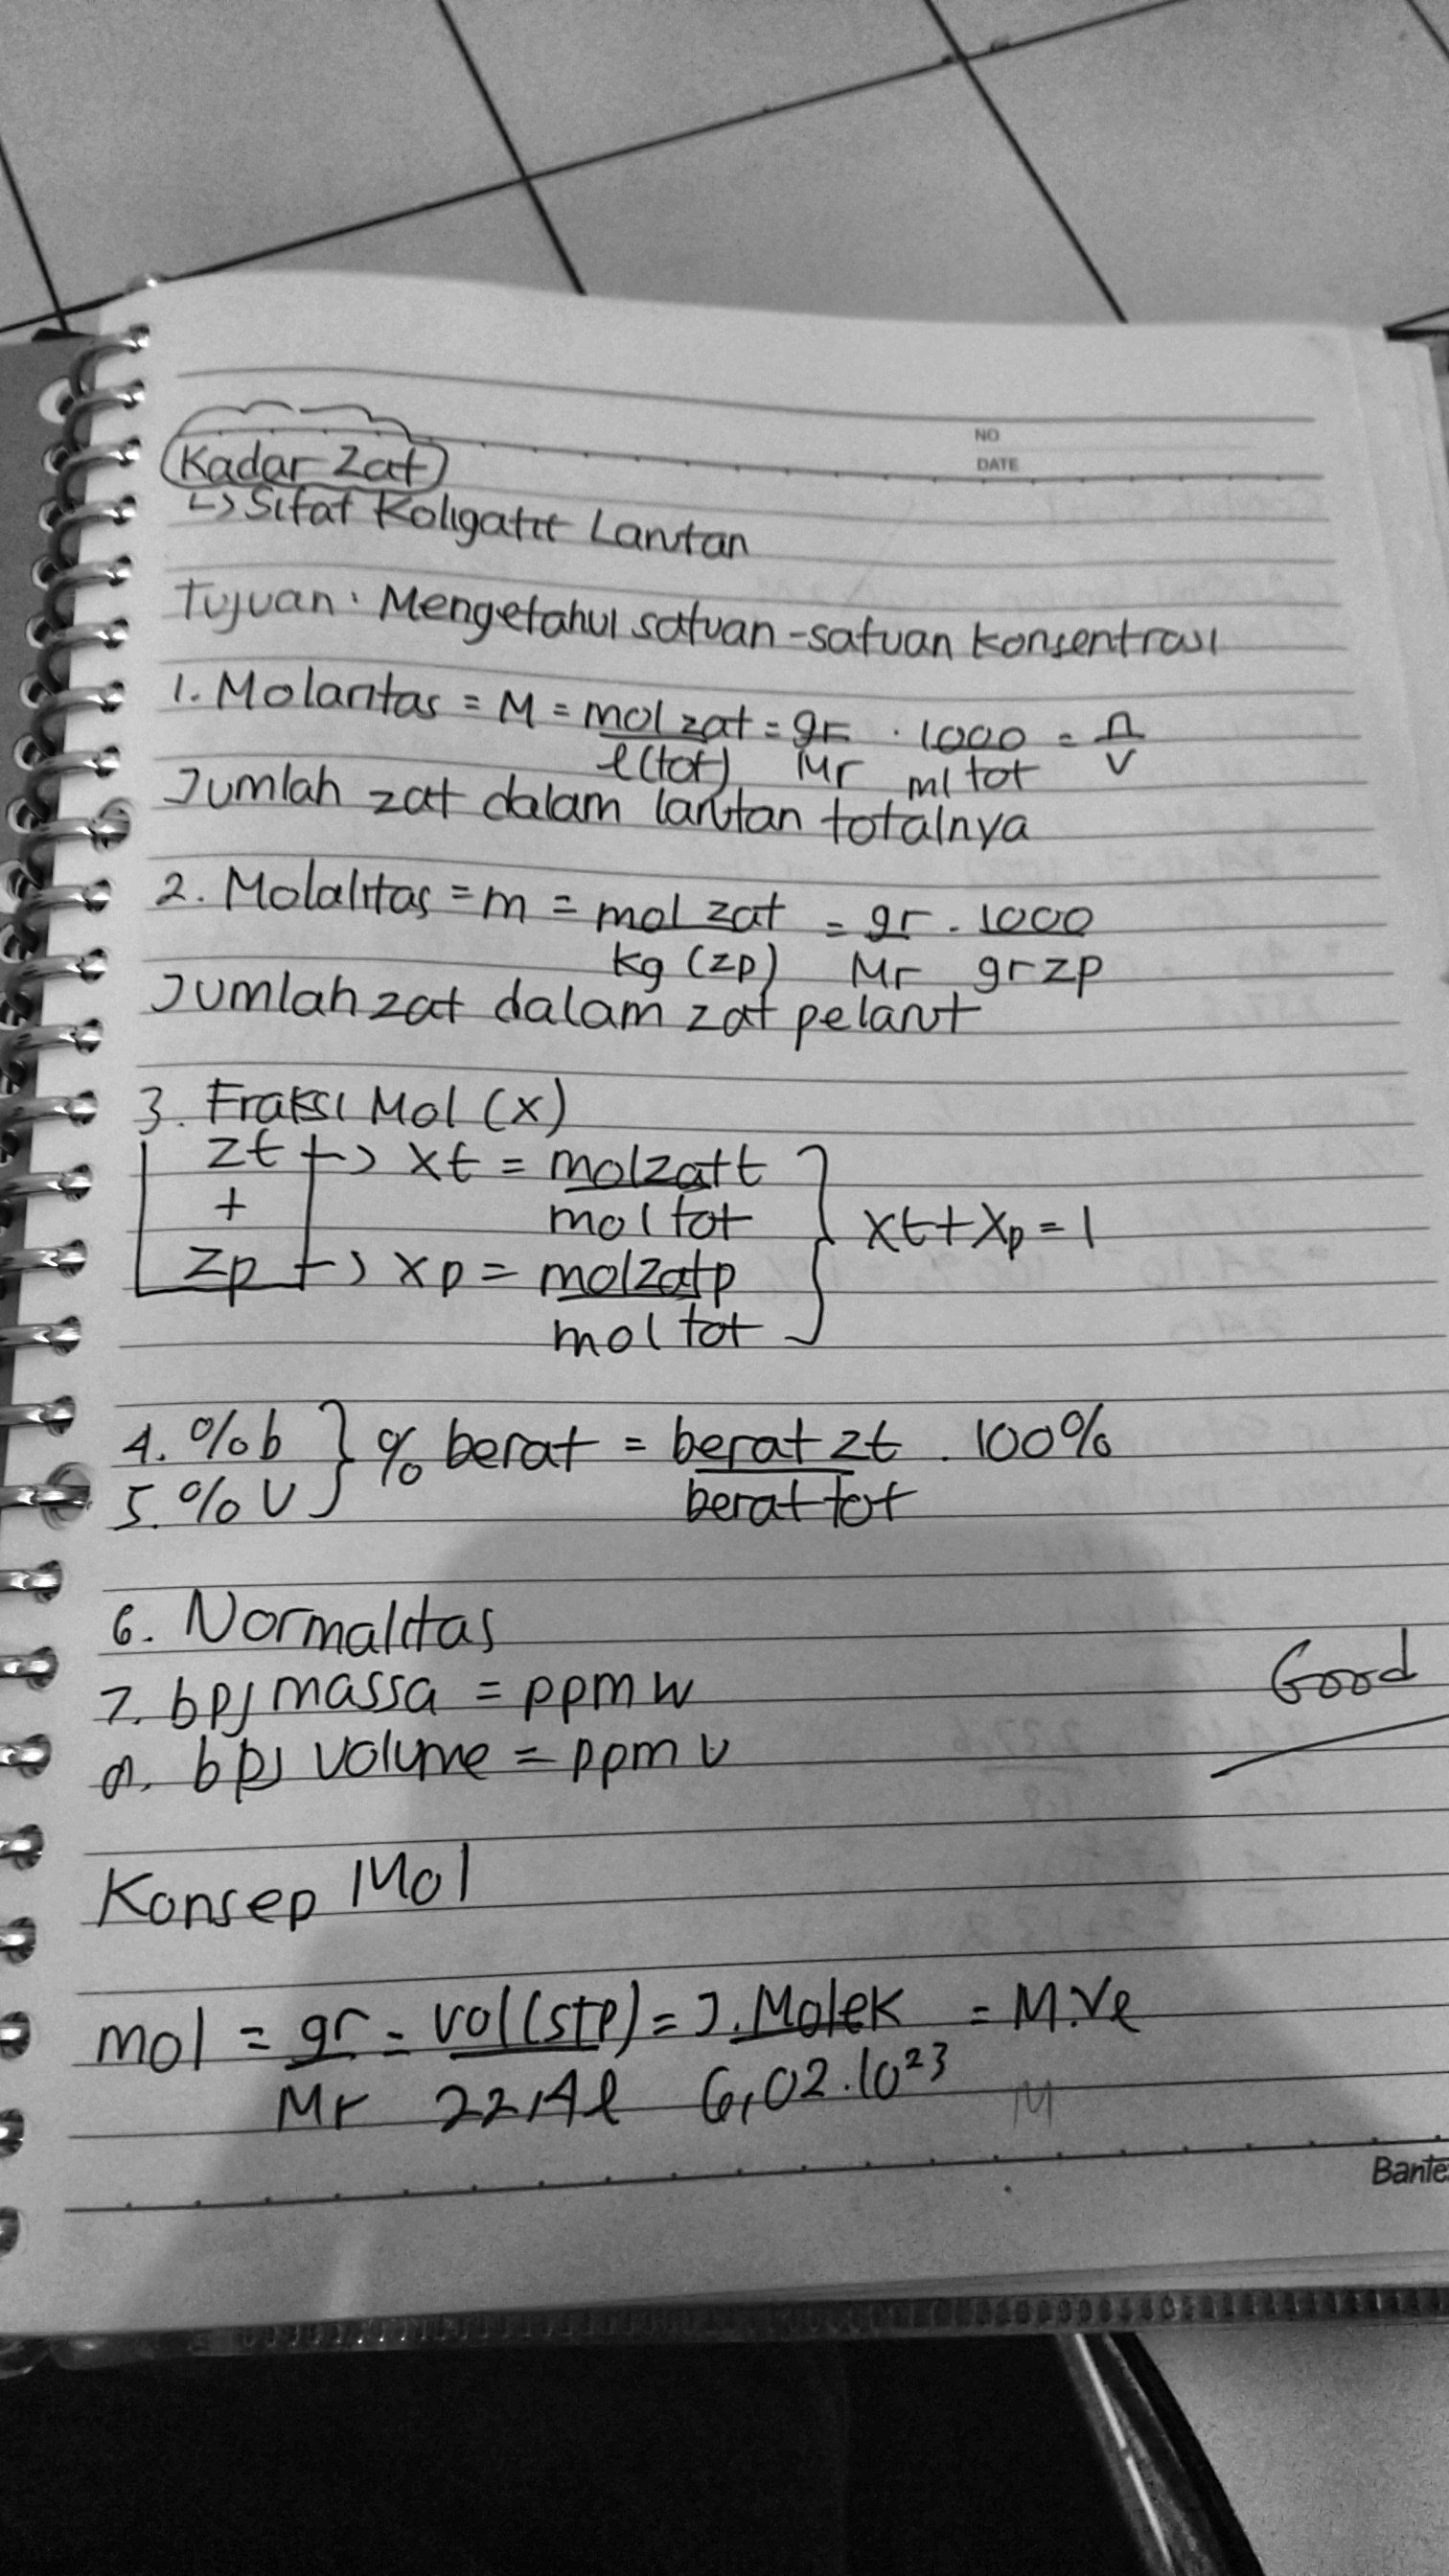 NO
DATE
Kadar Zat
↳ Sifat Koligatif Larutan
Tujuan : Mengetahui satuan-satuan konsentrasi
1. Molaritas = M = mol zat = gr . 1000 = n
l(tot) Mr ml tot v
Jumlah zat dalam larutan totalnya
2. Molalitas = m = mol zat = gr . 1000
kg (zp) Mr gr zp
Jumlah zat dalam zat pelarut
3. Fraksi Mol (x)
zt → xt = mol zat t
+ mol tot } xt + xp = 1
zp → xp = mol zat p
mol tot
4. %b } % berat = berat zt . 100%
5. %v berat tot
6. Normalitas
7. bpj massa = ppm w
8. bpj volume = ppm v
Good
Konsep Mol
mol = gr = vol (stp) = J. Molek = M.Vl
Mr 22,4l 6,02.10²³ M
Bante